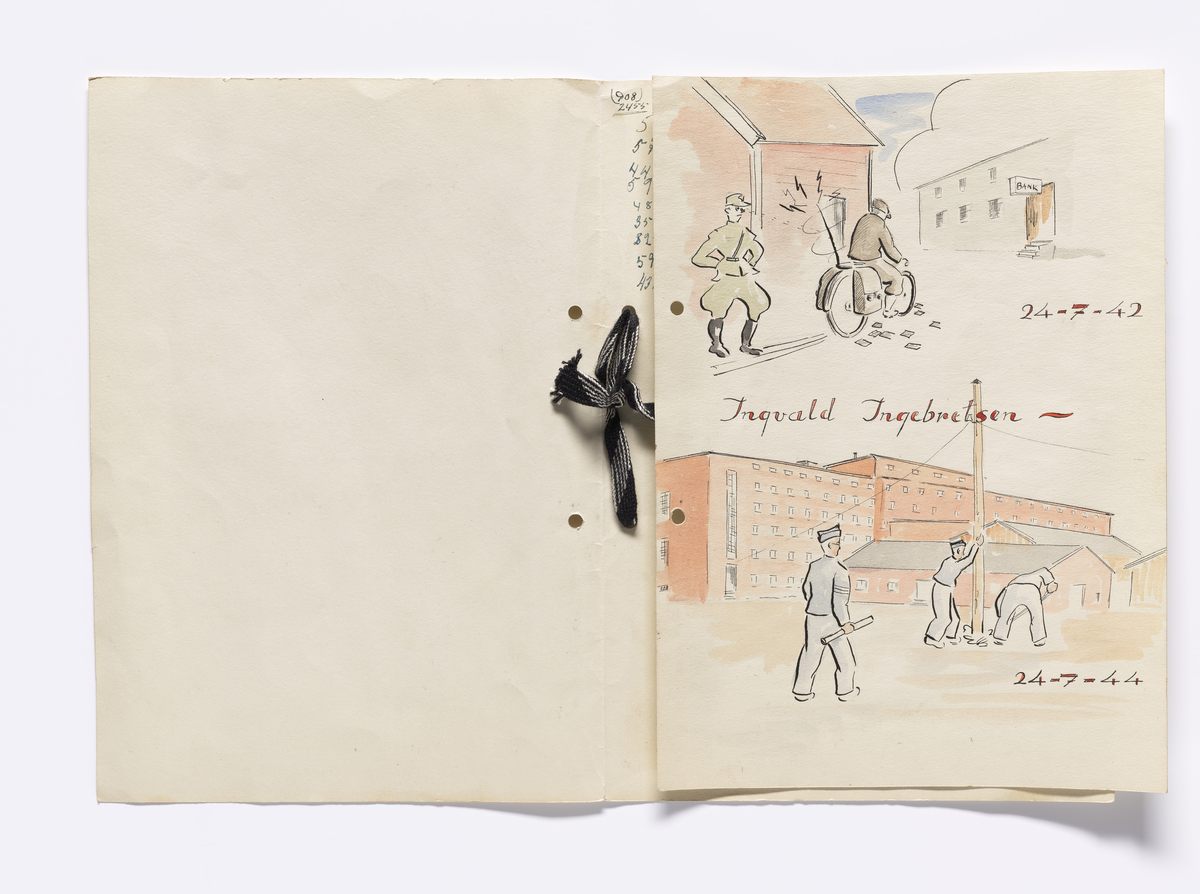 (908)
2455
5
5
44
57
48
35
82
59
43
BANK
24-7-42
Ingvald Ingebretsen ~
24-7-44